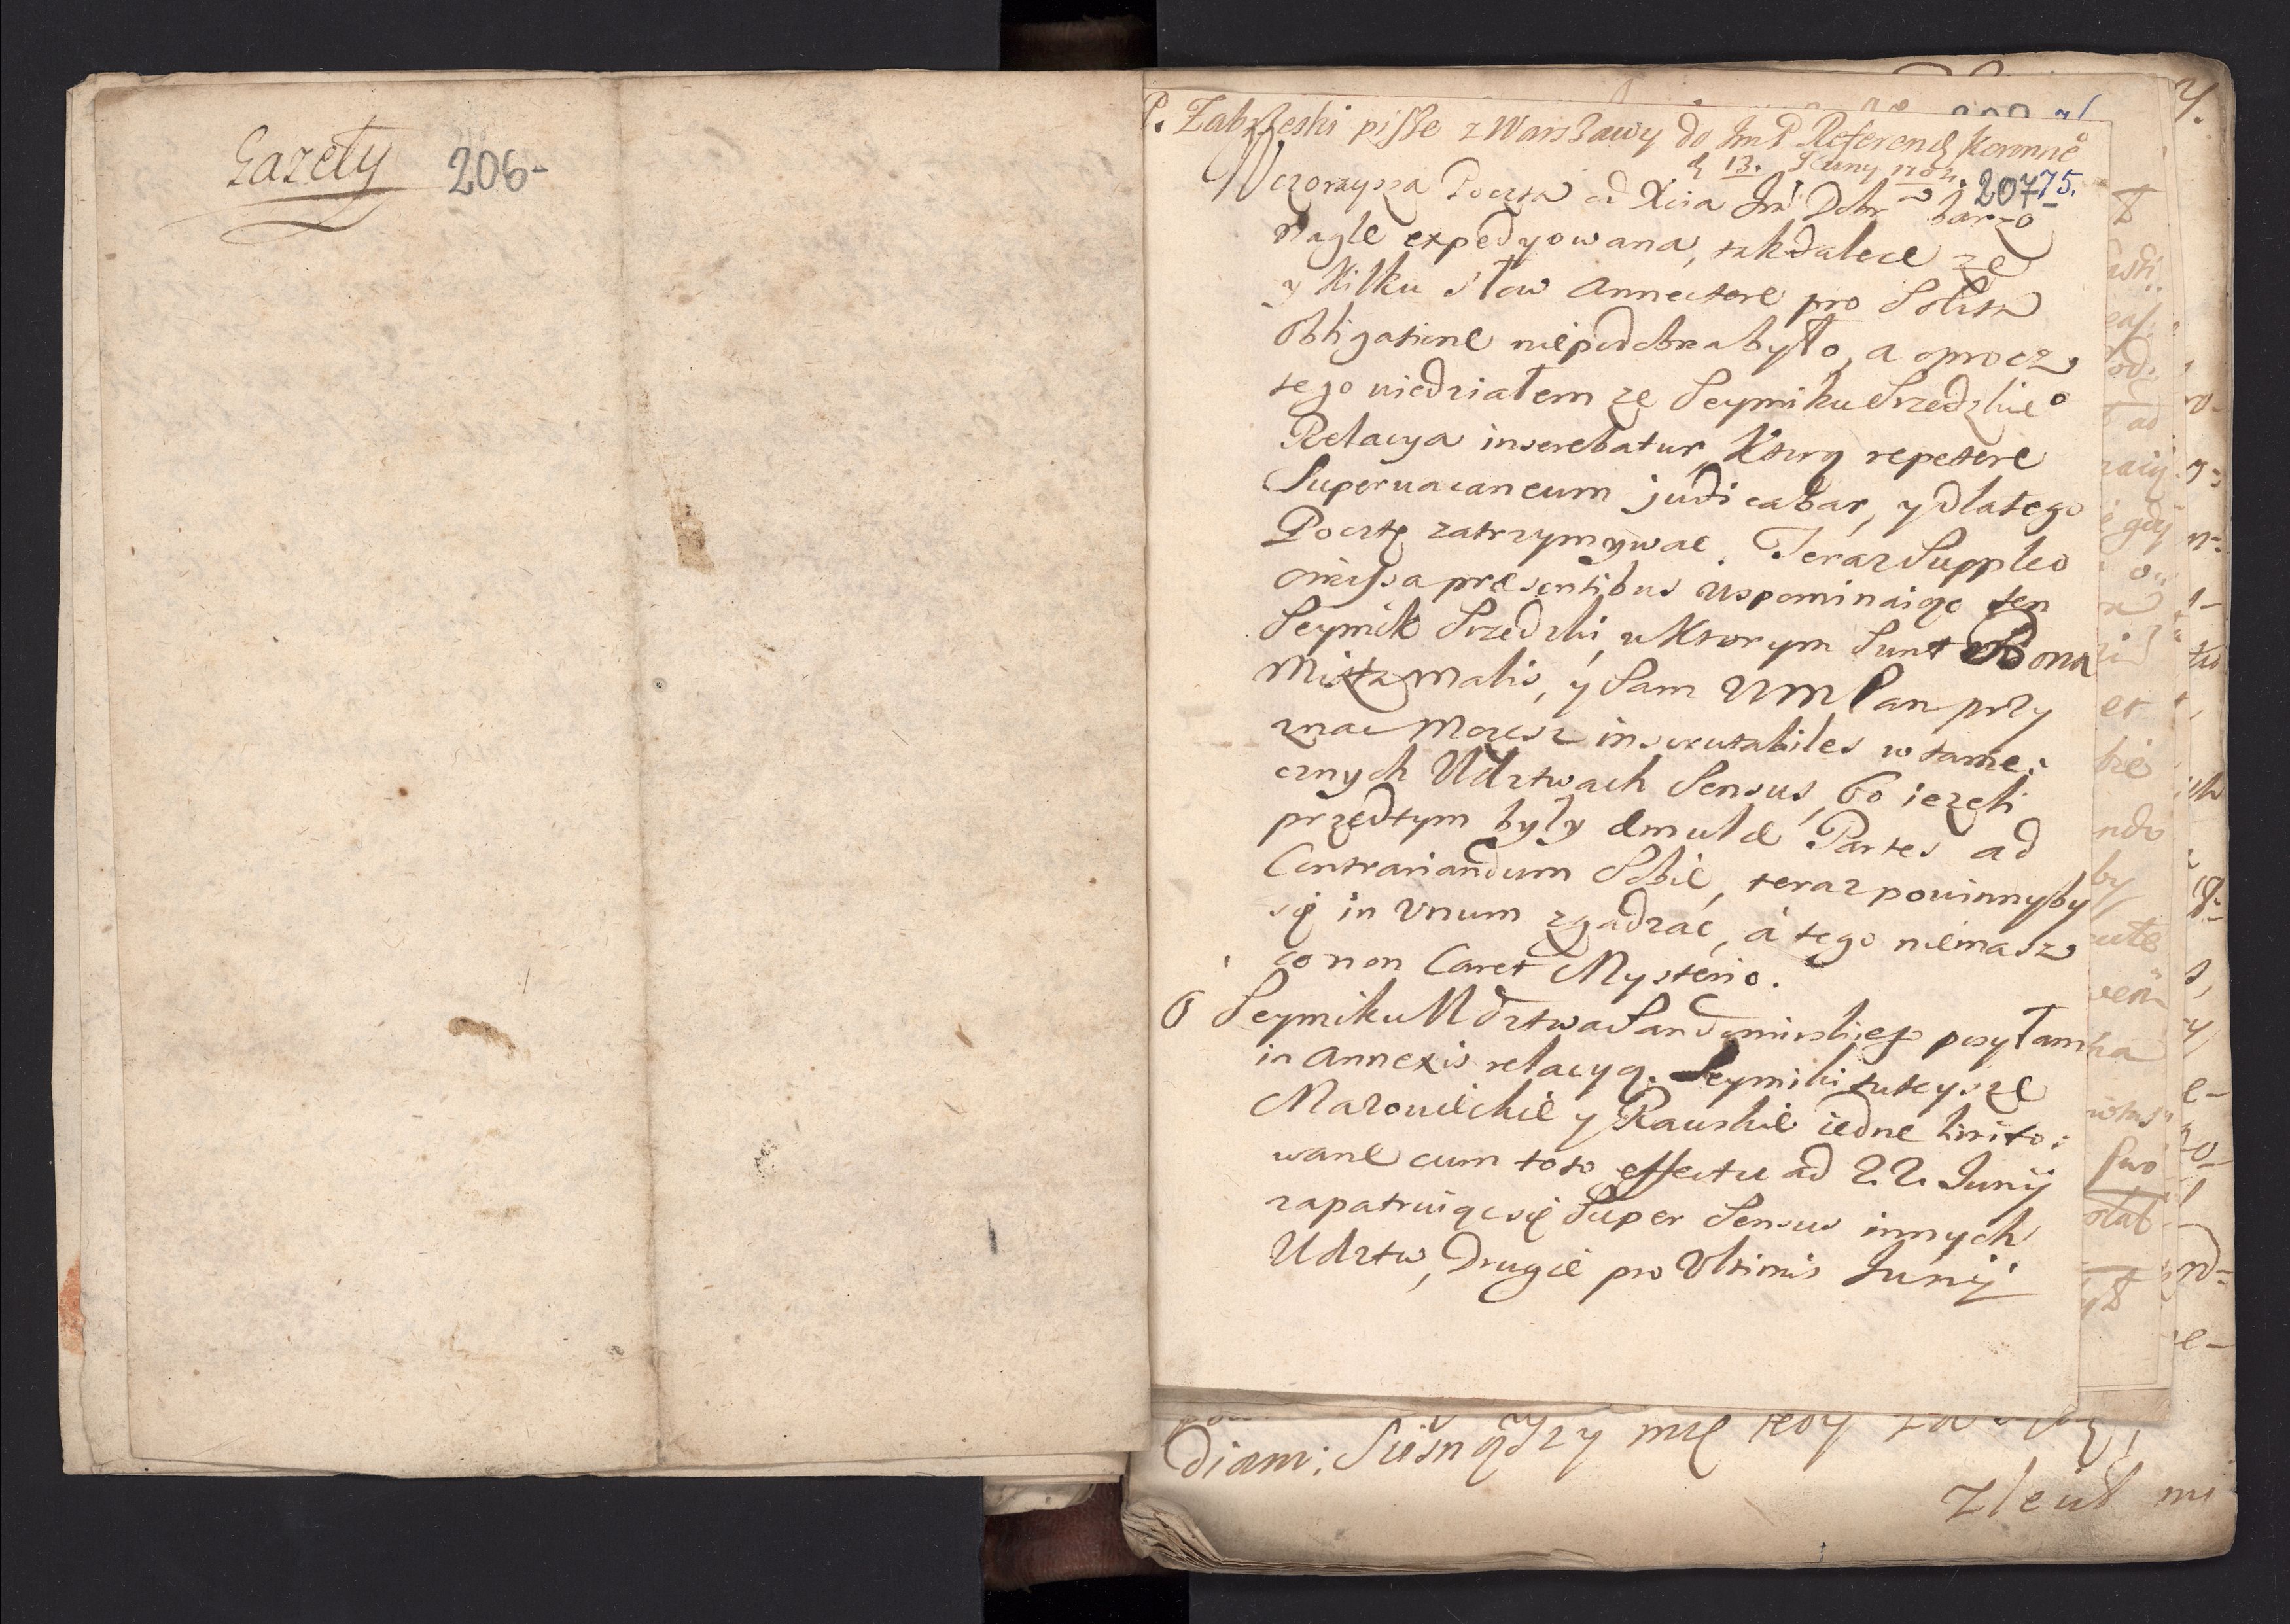 Gazety 206-
P. Zabrzeski pisze z Warszawy do Jm P Referend Koronne°
d 13. Juny 1702. 207 75.
Wczoraysza Poczta od Xcia Jm Dobr barzo
nagle expedyowana, takdalece ze
y kilku słow annectere pro Solita
obligatione niepodobna było, a oprocz
tego wiedziałem ze Seymiku Srzedzkie°
Relacya inserebatur, Ktorą repetere
Supervacaneum judicabar, y dlatego
Pocztę zatrzymywać. Teraz Suppleo
omissa præsentibus wspominaiąc ten
Seymik Srzedzki, w Ktorym Sunt Bona
Mixta malis, y Sam WM Pan przy
znac Mozesz inscrutabiles w tame:
cznych Wdztwach Sensus, bo iezeli
przedtym były æmulæ Partes ad
Contrariandum Sobie, teraz powinnyby
się in Unum zgadzać, á tego niemasz
co non Caret Mysterio.
O Seymiku Wdztwa Sandomirskiego posyłam
in Annexis relacyą. Seymiki tuteysze
Mazowieckie y Rawskie iedne limito:
wane cum toto effectu ad 22. Junij
zapatruiąc się Super Sensus innych
Wdztw, Drugie pro Ultimis Junij
diam: Suisną